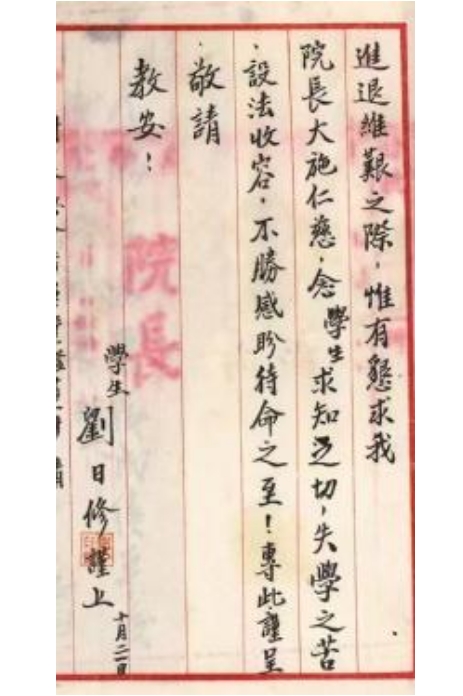 進退維艱之際，惟有懇求我
院長大施仁慈，念學生求知之切，失學之苦
，設法收容，不勝感盼待命之至！專此謹呈
敬請
教安！
學生劉日修謹上
十月二一日
院長